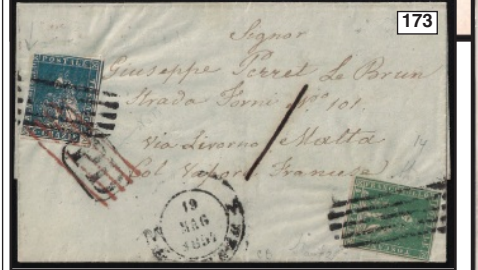 173
Signor
Giuseppe Perret Le Brun
Strada Forni N.º 101.
Via Livorno Malta
Col Vapore Francese
PD
19
MAG
1857